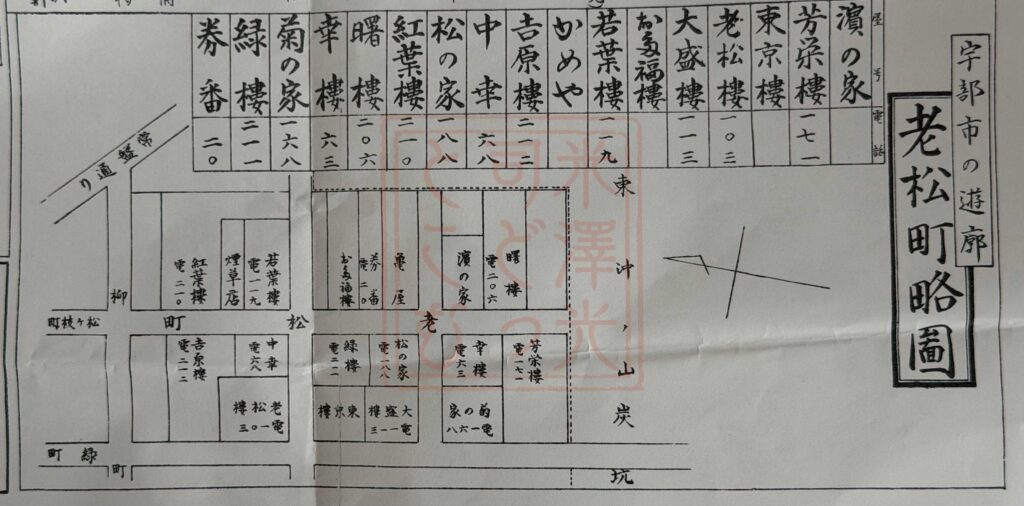 宇部市の遊廓
老松町略圖
屋号 電話
濱の家
芳栄樓 一七一
東京樓
老松樓 一〇三
大盛樓 一一三
お多福樓
若葉樓 一一九
かめや
吉原樓 二一二
中幸 六八
松の家 一八八
紅葉樓 二一〇
曙樓 二〇六
幸樓 六三
菊の家 一六八
緑樓 二一一
券番 二〇
東沖ノ山炭坑
常盤通り
曙樓 電二〇六
濱の家
亀屋
券番 電二〇
お多福樓
若葉樓 電一一九
煙草店
紅葉樓 電二一〇
柳町
老松町
松ヶ枝町
芳栄樓 電一七一
幸樓 電六三
松の家 電一八八
緑樓 電二一一
中幸 電六八
吉原樓 電二一二
菊の家 電一六八
大盛樓 電一一三
東京樓
老松樓 電一〇三
緑町
米澤光司のどっとこむ